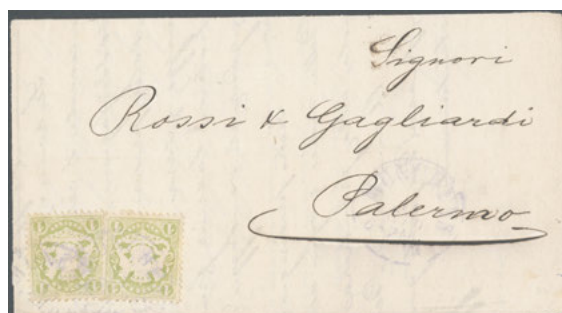 Signori
Rossi & Gagliardi
Palermo
1 1 1 1
1 1 1 1